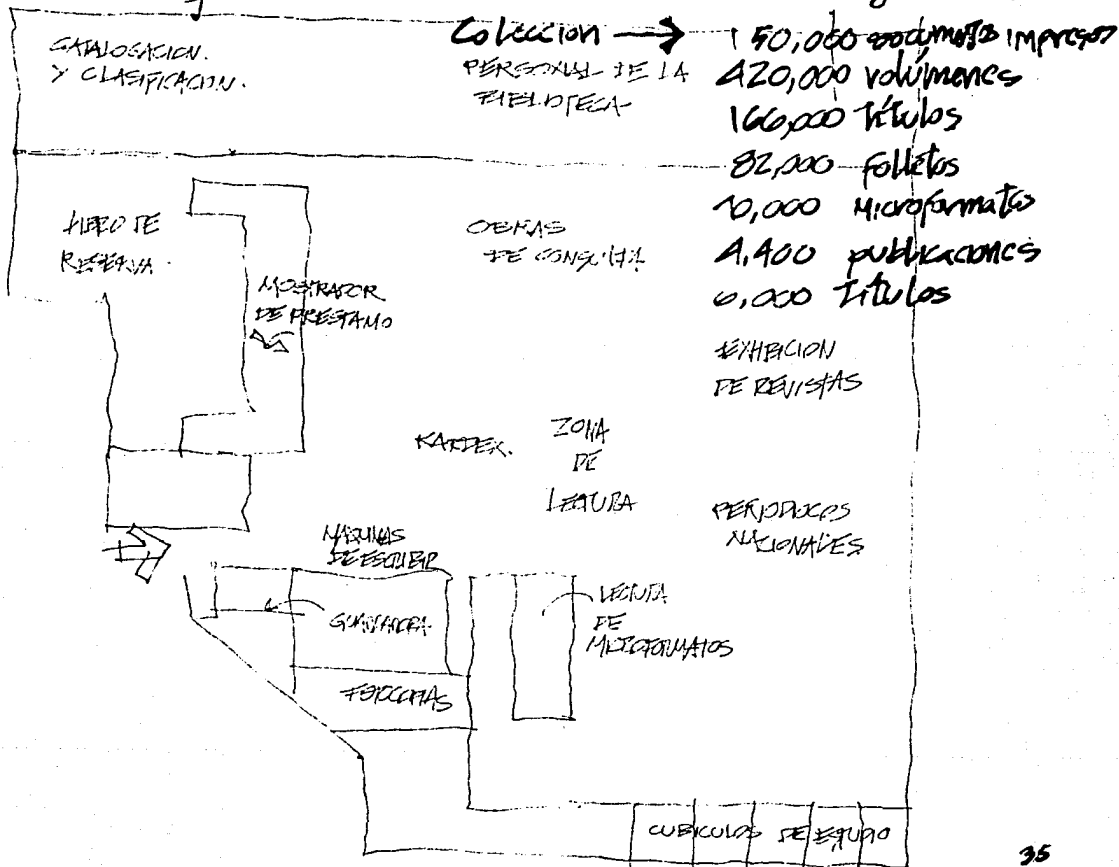 CATALOGACION.
Y CLASIFICACION.
Colección → 150,000 documentos impresos
420,000 volúmenes
166,000 títulos
82,000 folletos
10,000 Microformatos
4,400 publicaciones
6,000 títulos
PERSONAL DE LA
BIBLIOTECA
LIBRO DE
RESERVA.
MOSTRADOR
DE PRESTAMO
OBRAS
DE CONSULTA
EXHIBICION
DE REVISTAS
KARDEX.
ZONA
DE
LECTURA
PERIODICOS
NACIONALES
MAQUINAS
DE ESCRIBIR
GUARDARROPA
LECTURA
DE
MICROFORMATOS
FOTOCOPIAS
CUBICULOS DE ESTUDIO
35